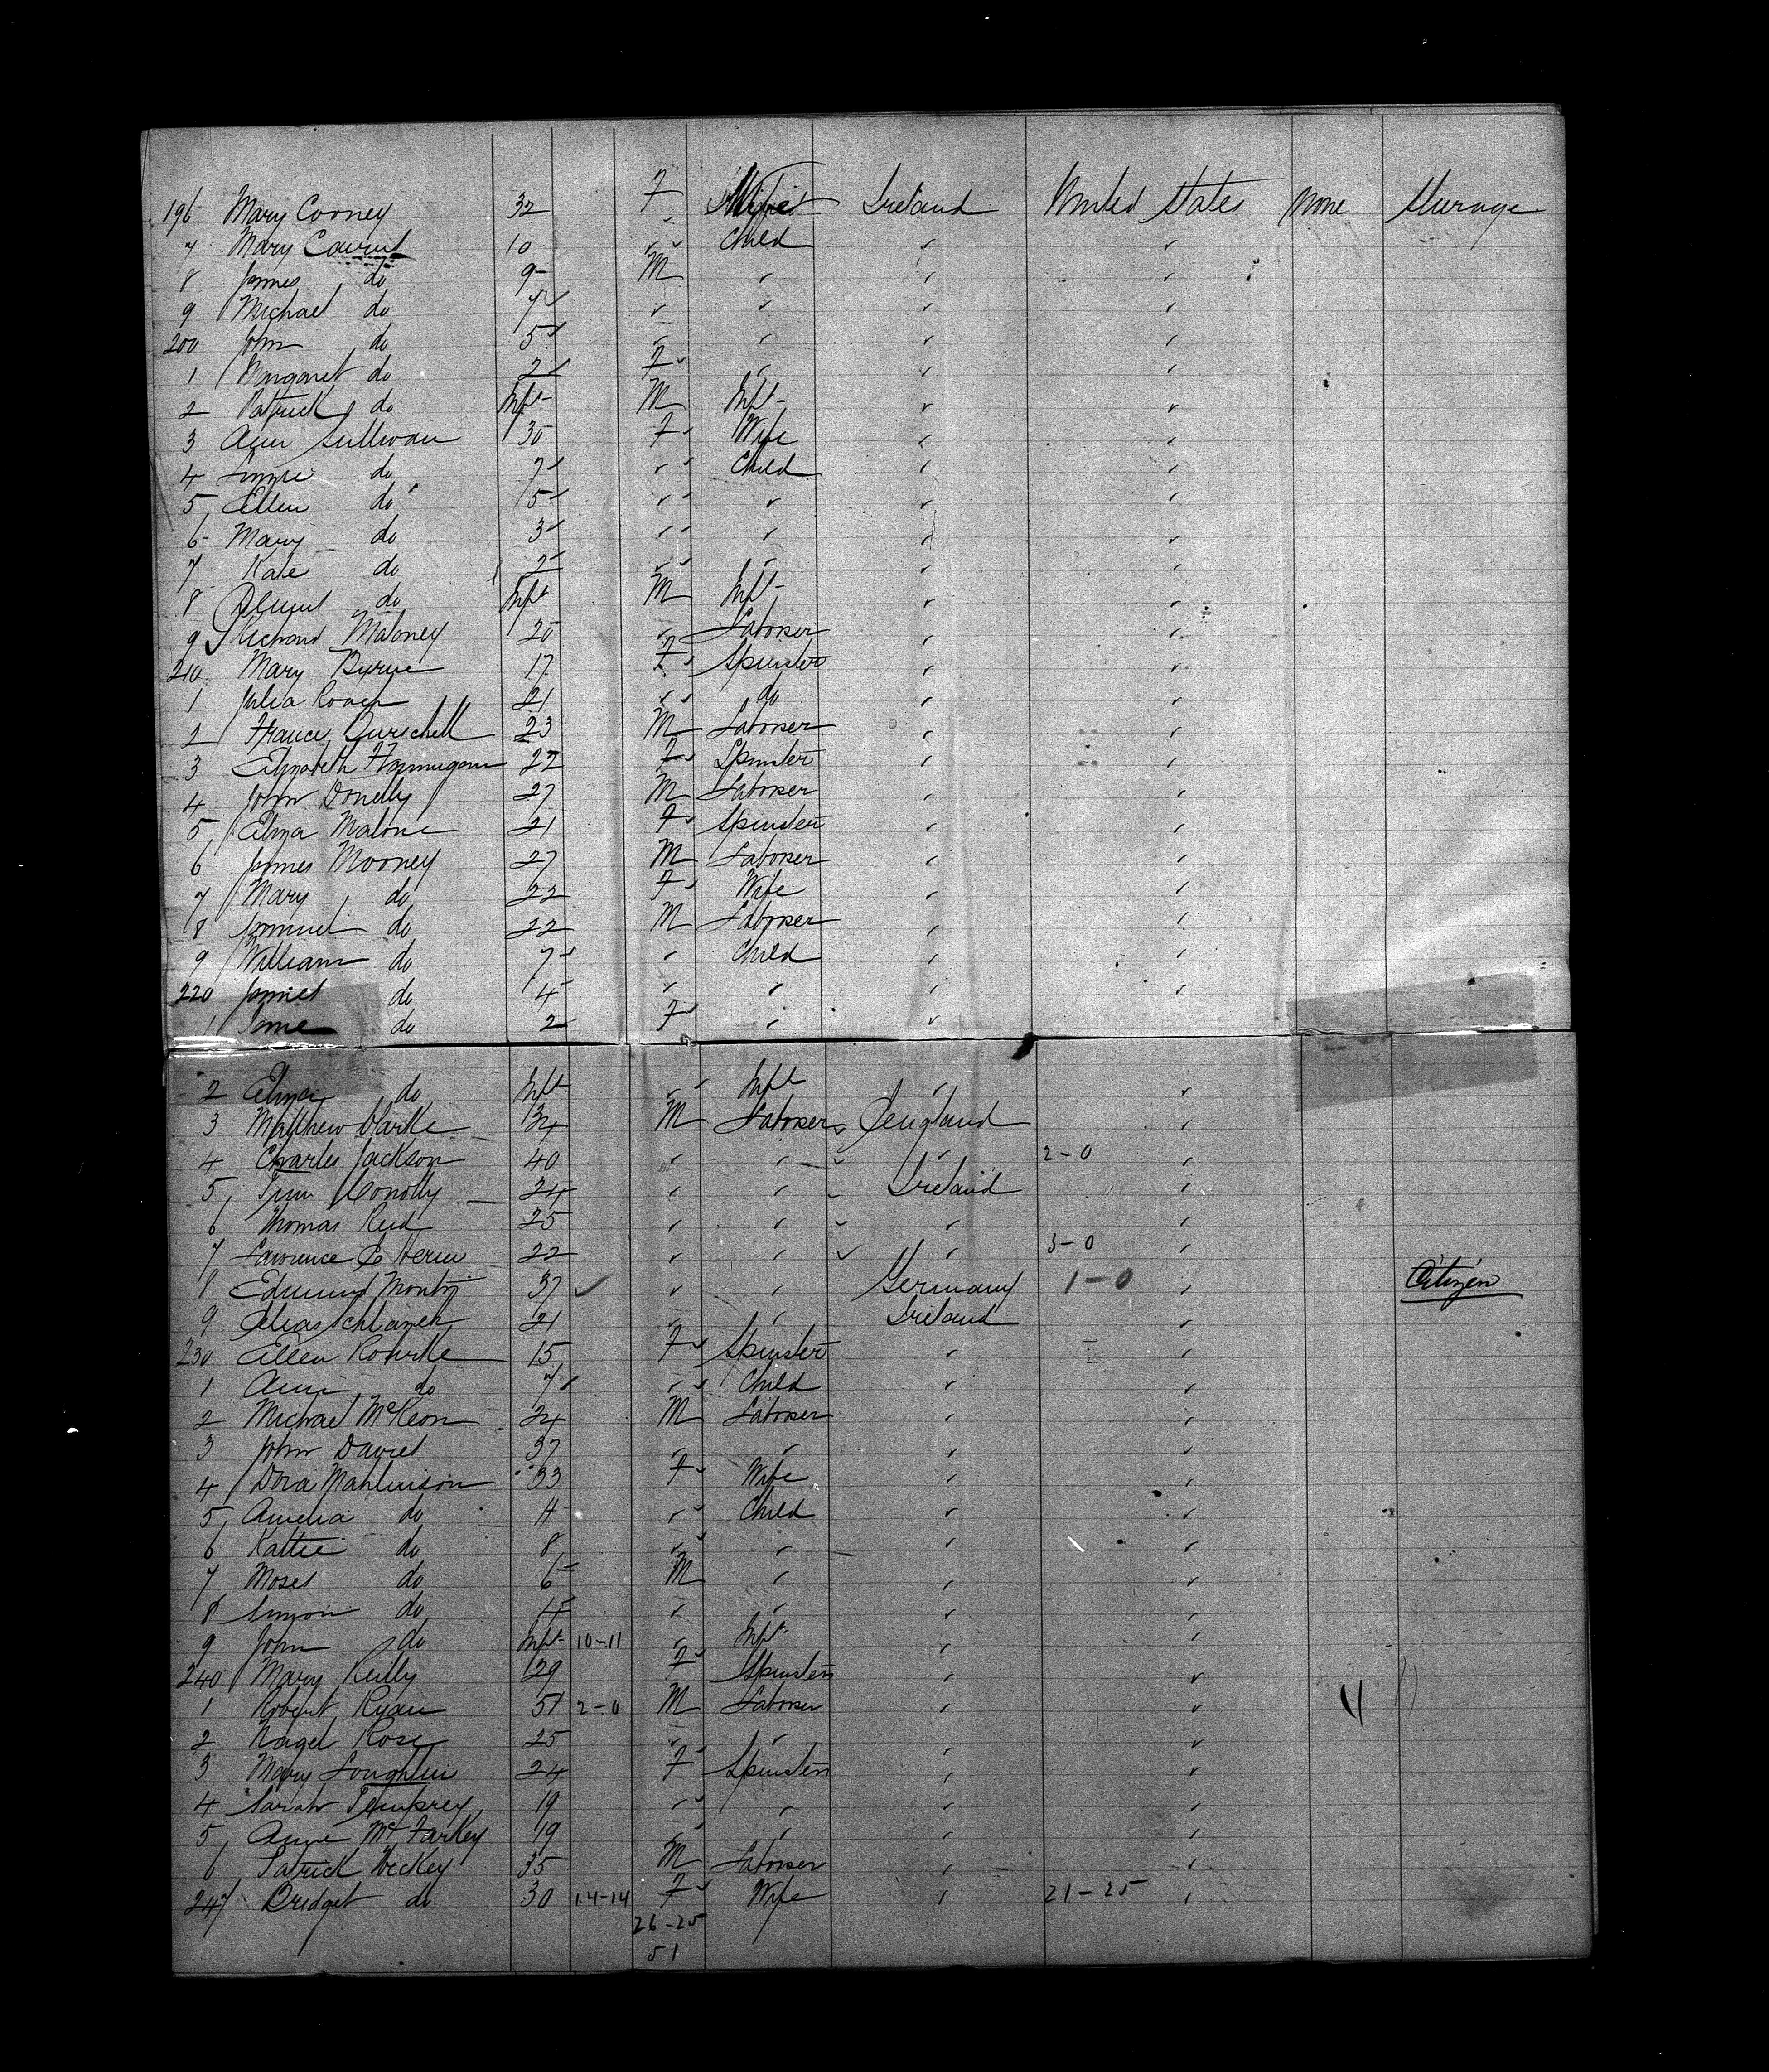 196 Mary Cooney 32 F Wife Ireland United States None Steerage
7 Mary 10 " Child " "
8 James do 9 M " " "
9 Michael do 7 " " " "
200 John do 5 " " " "
1 Margaret do 2 F " " "
2 Patrick do Inft M Inft " "
3 Ann Sullivan 30 F Wife " "
4 Lizzie do 7 " Child " "
5 Ellen do 5 " " " "
6 Mary do 3 " " " "
7 Kate do 2 " " " "
8 do Inft M Inft " "
9 Richard Maloney 20 " Laborer " "
210 Mary Byrne 17 F Spinster " "
1 Julia Roach 21 " do " "
2 Francis 23 M Laborer " "
3 Elizabeth 22 F Spinster " "
4 John Donelly 27 M Laborer " "
5 Eliza Malone 21 F Spinster " "
6 James Mooney 27 M Laborer " "
7 Mary do 22 F Wife " "
8 Samuel do 22 M Laborer " "
9 William do 7 " Child " "
220 James do 4 " " " "
1 Jane do 2 F " "
2 Eliza do Inft " Inft " "
3 Matthew Clarke 34 M Laborer England "
4 Charles Jackson 40 " " " 2-0 "
5 Conolly 24 " " Ireland "
6 Thomas Reid 25 " " " "
7 Lawrence 22 " " " 3-0 "
8 Edmund 37 " " Germany 1-0 " Citizen
9 21 " " Ireland "
230 Ellen Rourke 15 F Spinster " "
1 Ann do 7 " Child " "
2 Michael McKeon 24 M Laborer " "
3 John Daniel 37 " " " "
4 Dora 33 F Wife " "
5 Amelia do 11 " Child " "
6 Kattie do 8 " " " "
7 Moses do 6 M " " "
8 Simon do 4 " " " "
9 John do Inft 10-11 " Inft " "
240 Mary Reilly 29 F Spinster " "
1 Robert Ryan 51 2-0 M Laborer " "
2 Nagel Rose 25 " " " "
3 Mary Loughlin 24 F Spinster " "
4 Sarah 19 " " " "
5 Anne 19 " " " "
6 Patrick 35 M Laborer " "
247 Bridget do 30 14-14 F Wife " 21-25 "
26-25
51